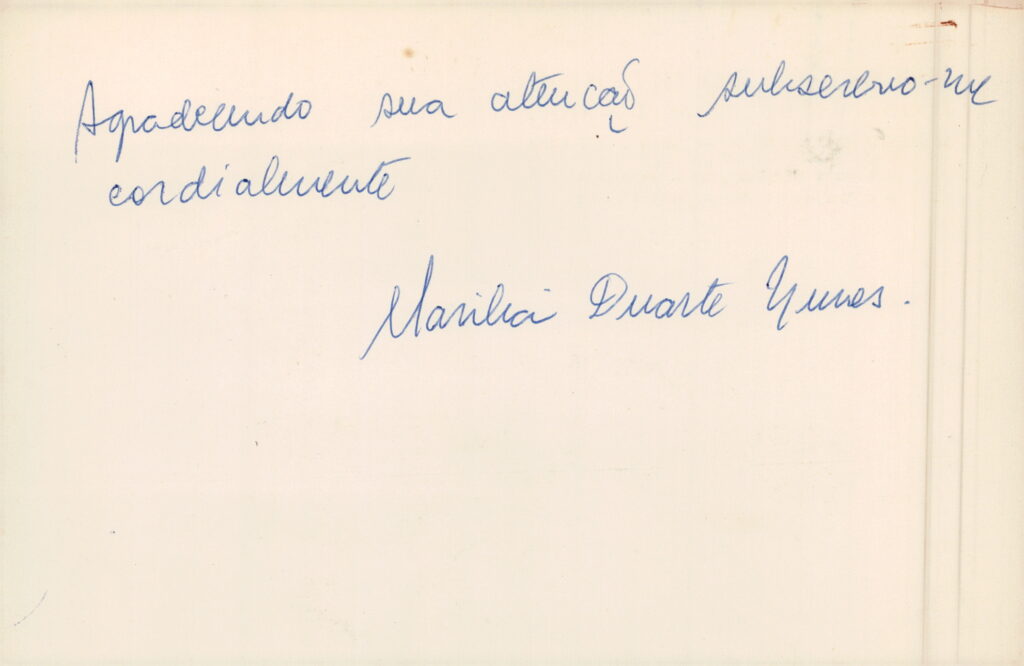 Agradecendo sua atenção subscrevo-me
cordialmente
Marilia Duarte Yunes.